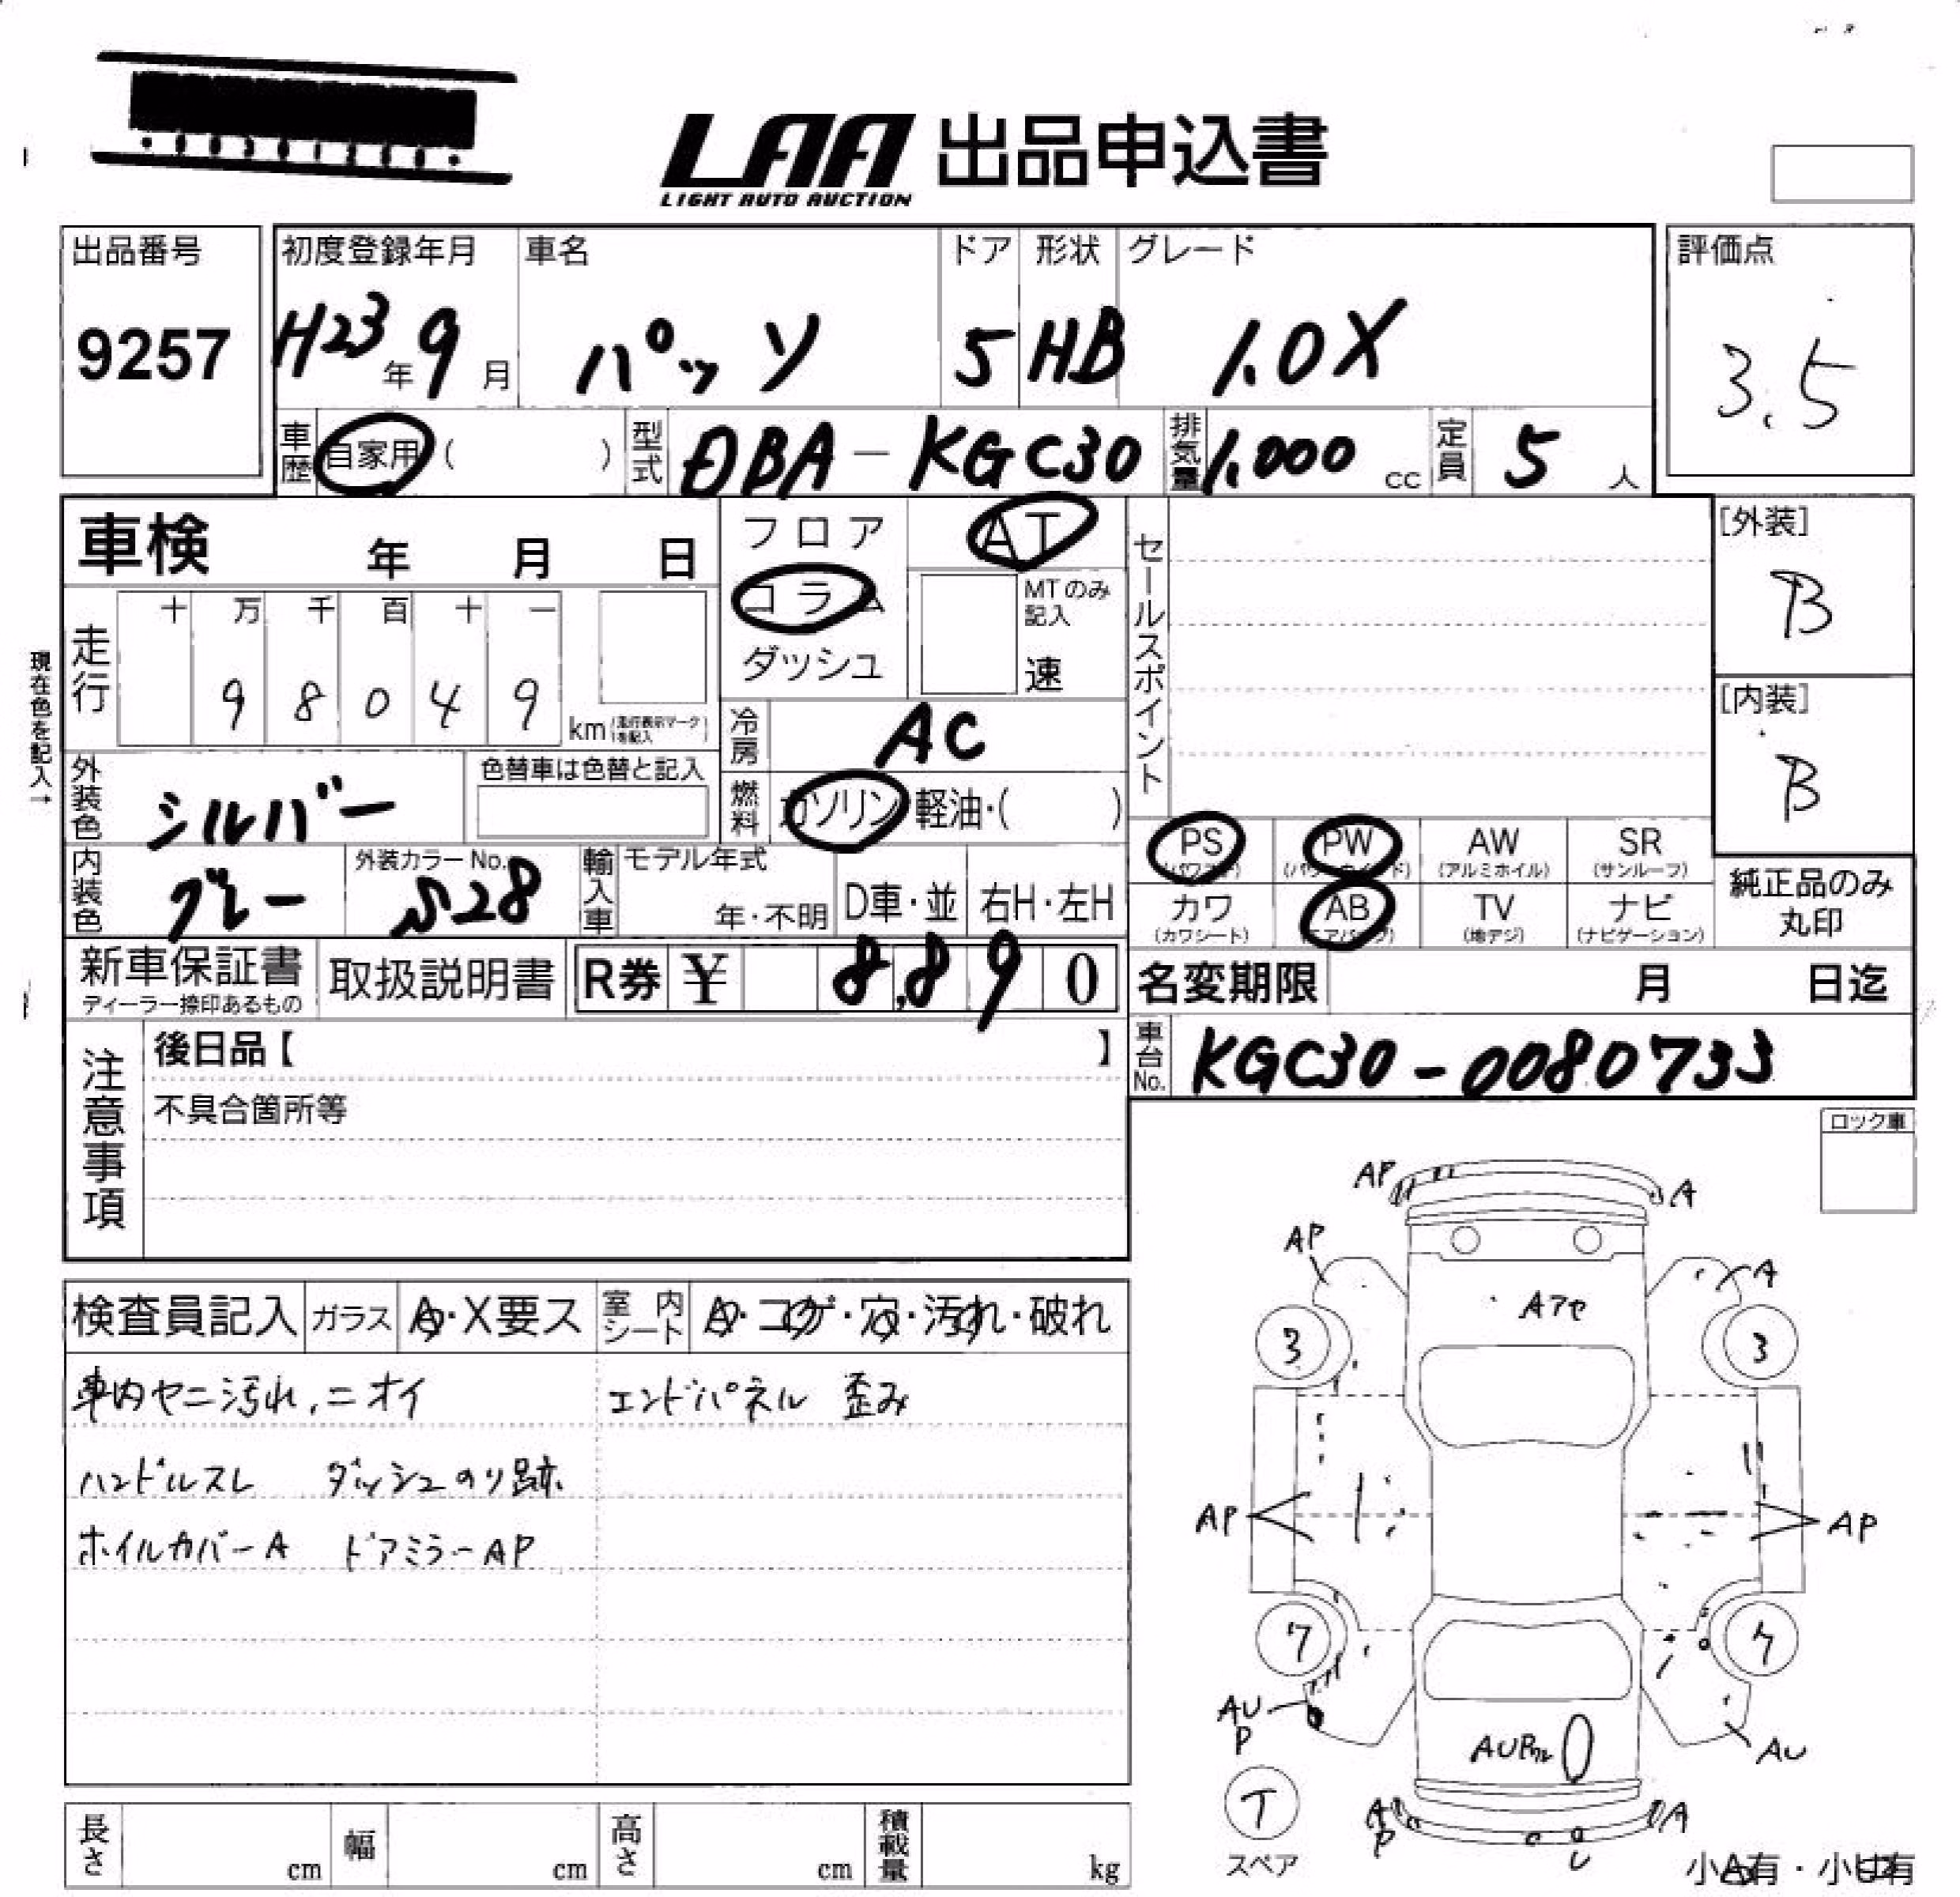 LAA 出品申込書
LIGHT AUTO AUCTION
出品番号
9257
初度登録年月
H23年 9月
車名
パッソ
ドア
5
形状
HB
グレード
1.0X
評価点
3.5
車歴 自家用 ( )
型式 DBA-KGC30
排気量 1,000 cc
定員 5 人
車検 年 月 日
フロア
コラム
ダッシュ
AT
MTのみ記入
速
セールスポイント
[外装]
B
[内装]
B
現在色を記入→
走行
十 万 千 百 十 一
9 8 0 4 9
km (走行表示マークを記入)
冷房 AC
外装色 シルバー
色替車は色替と記入
燃料 ガソリン 軽油・( )
内装色 グレー
外装カラーNo. S28
輸入車
モデル年式
年・不明
D車・並
右H・左H
PS (パワステ)
PW (パワーウィンド)
AW (アルミホイル)
SR (サンルーフ)
カワ (カワシート)
AB (エアバッグ)
TV (地デジ)
ナビ (ナビゲーション)
純正品のみ
丸印
新車保証書
ディーラー捺印あるもの
取扱説明書
R券 ¥ 8,890
名変期限 月 日迄
車台No. KGC30-0080733
注意事項
後日品【 】
不具合箇所等
ロック車
検査員記入
ガラス A・X要ス
室内シート A・コゲ・穴・汚れ・破れ
車内ヤニ汚れ、ニオイ
エンドパネル 歪み
ハンドルスレ ダッシュのり跡
ホイルカバーA ドアミラーAP
AP
A
AP
A
Aアセ
3
3
AP
AP
7
AUP
AU
AP
A
U
T
スペア
小A有・小U有
長さ cm
幅 cm
高さ cm
積載量 kg